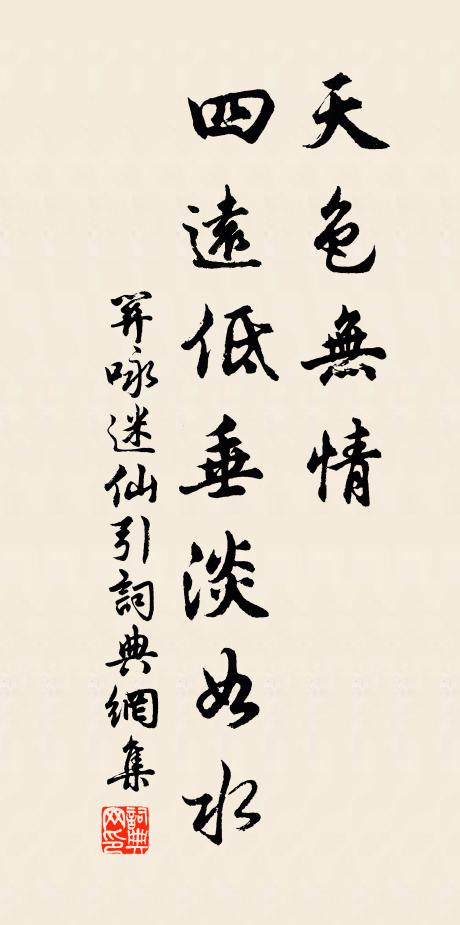 天色無情
四遠低垂淡如水
關咏迷仙引詞典網集
詞典网印